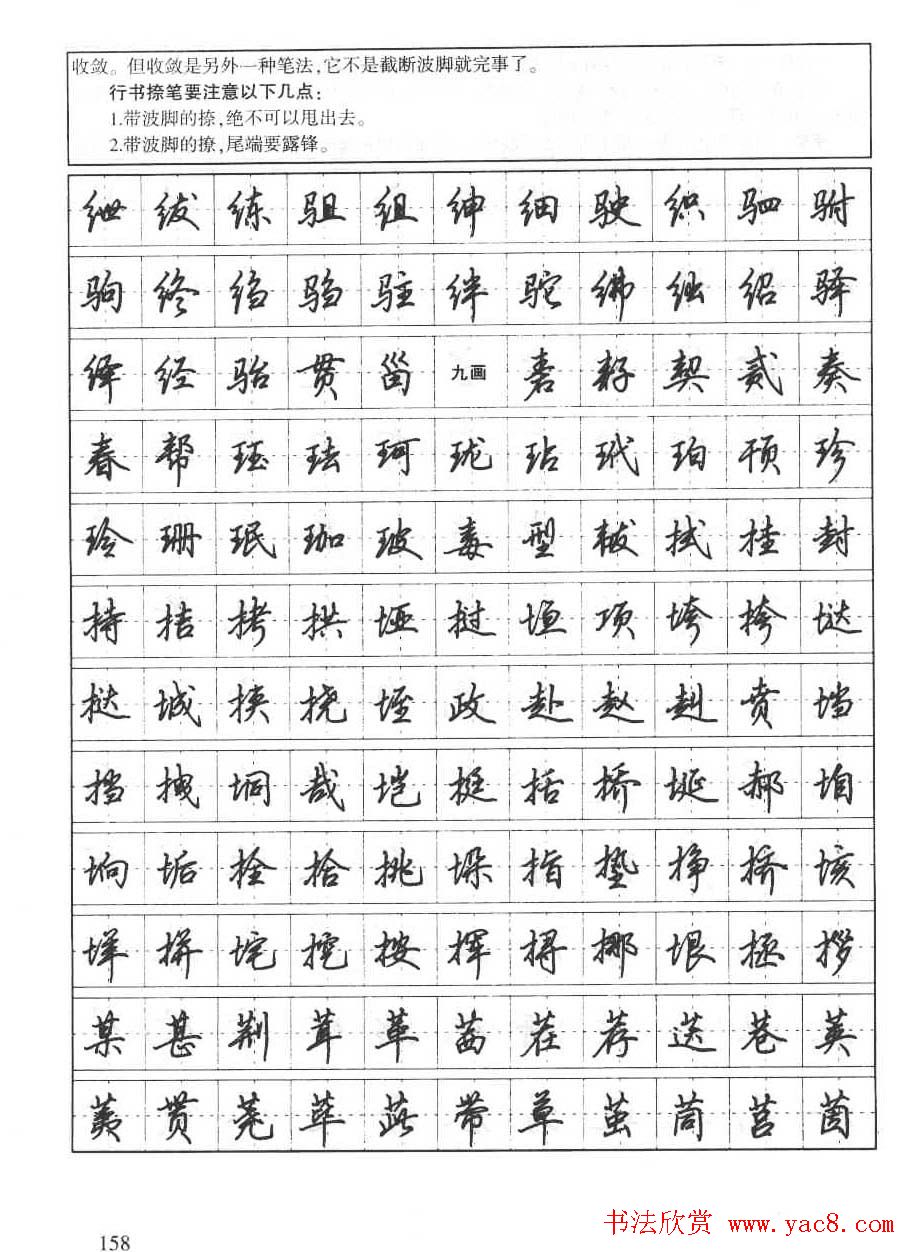 收敛。但收敛是另外一种笔法,它不是截断波脚就完事了。
行书捺笔要注意以下几点:
1.带波脚的捺,绝不可以甩出去。
2.带波脚的撩,尾端要露锋。
绁 绂 练 驵 组 绅 细 驶 织 驷 驸
驹 终 绉 驺 驻 绊 驼 绋 绌 绍 驿
绎 经 骀 贯 甾 九画 砉 耔 契 贰 奏
春 帮 珏 珐 珂 珑 玷 玳 珀 顸 珍
玲 珊 珉 珈 玻 毒 型 韨 拭 挂 封
持 拮 拷 拱 垭 挝 垣 项 垮 挎 垯
挞 城 挟 挠 垤 政 赴 赵 赳 贲 垱
挡 拽 垌 哉 垲 挺 括 挢 埏 郝 垍
垧 垢 拴 拾 挑 垛 指 垫 挣 挤 垓
垟 拼 垞 挖 按 挥 挦 挪 垠 拯 拶
某 甚 荆 茸 革 茜 茬 荐 荙 巷 荚
荑 贳 荛 荜 茈 带 草 茧 茼 莒 茵
158
书法欣赏 www.yac8.com